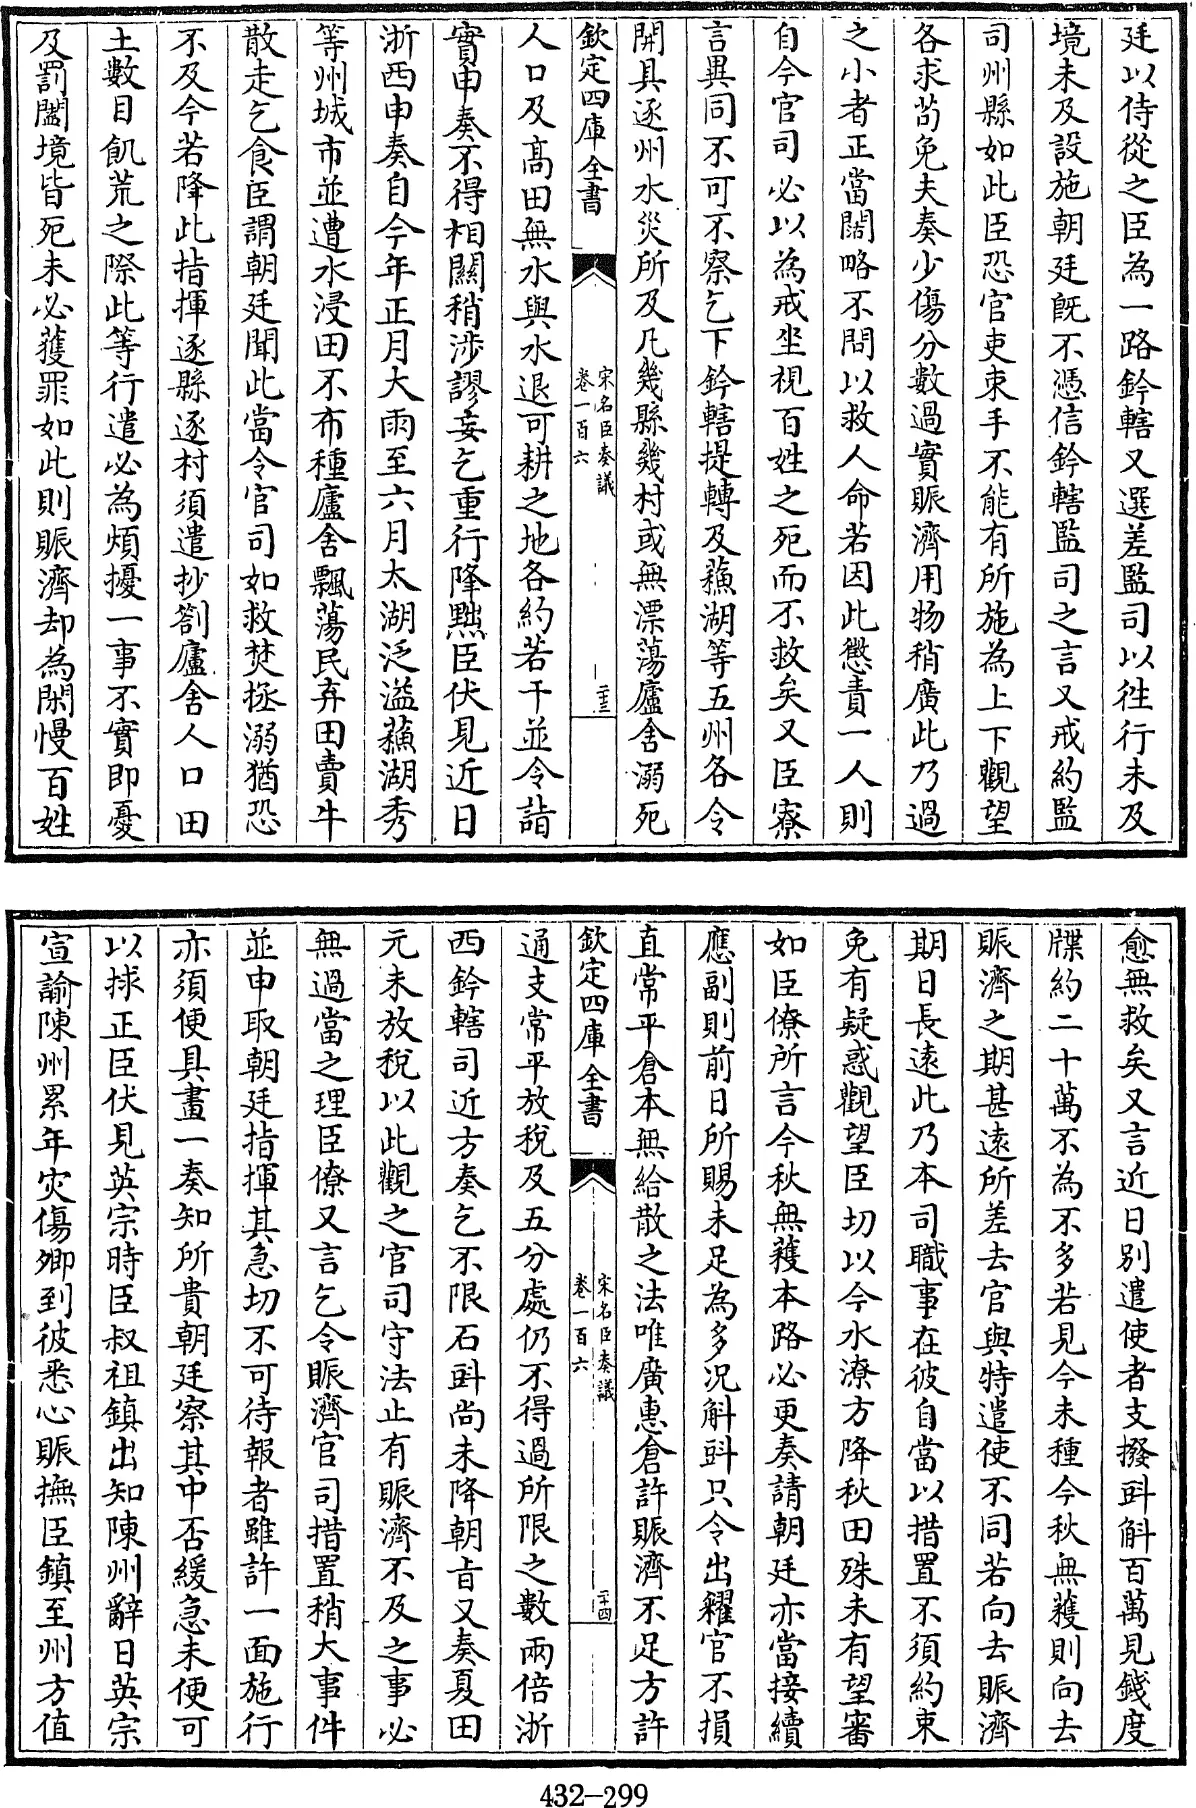 廷以侍從之臣為一路鈐轄又選差監司以徃行未及
境未及設施朝廷既不憑信鈐轄監司之言又戒約監
司州縣如此臣恐官吏束手不能有所施為上下觀望
各求茍免夫奏少傷分數過實賑濟用物稍廣此乃過
之小者正當闊略不問以救人命若因此懲責一人則
自今官司必以為戒坐視百姓之死而不救矣又臣寮
言異同不可不察乞下鈐轄提轉及蘓湖等五州各令
開具逐州水災所及凡幾縣幾村或無漂蕩廬舍溺死
欽定四庫全書
宋名臣奏議
卷一百六
二十三
人口及髙田無水與水退可耕之地各約若干並令詣
實申奏不得相關稍涉謬妄乞重行降黜臣伏見近日
浙西申奏自今年正月大雨至六月太湖泛溢蘓湖秀
等州城市並遭水浸田不布種廬舍飄蕩民弃田賣牛
散走乞食臣謂朝廷聞此當令官司如救焚拯溺猶恐
不及今若降此指揮逐縣逐村須遣抄劄廬舍人口田
土數目飢荒之際此等行遣必為煩擾一事不實即憂
及罰闔境皆死未必獲罪如此則賑濟却為閑慢百姓
愈無救矣又言近日别遣使者支撥斗斛百萬見錢度
牒約二十萬不為不多若見今未種今秋無穫則向去
賑濟之期甚逺所差去官與特遣使不同若向去賑濟
期日長逺此乃本司職事在彼自當以措置不須約束
免有疑惑觀望臣切以今水潦方降秋田殊未有望審
如臣僚所言今秋無穫本路必更奏請朝廷亦當接續
應副則前日所賜未足為多況斛斗只令出糶官不損
直常平倉本無給散之法唯廣惠倉許賑濟不足方許
欽定四庫全書
宋名臣奏議
卷一百六
二十四
通支常平放稅及五分處仍不得過所限之數兩倍浙
西鈐轄司近方奏乞不限石斗尚未降朝㫖又奏夏田
元未放稅以此觀之官司守法止有賑濟不及之事必
無過當之理臣僚又言乞令賑濟官司措置稍大事件
並申取朝廷指揮其急切不可待報者雖許一面施行
亦須便具畫一奏知所貴朝廷察其中否緩急未便可
以捄正臣伏見英宗時臣叔祖鎮出知陳州辭日英宗
宣諭陳州累年灾傷卿到彼悉心賑撫臣鎮至州方值
432-299